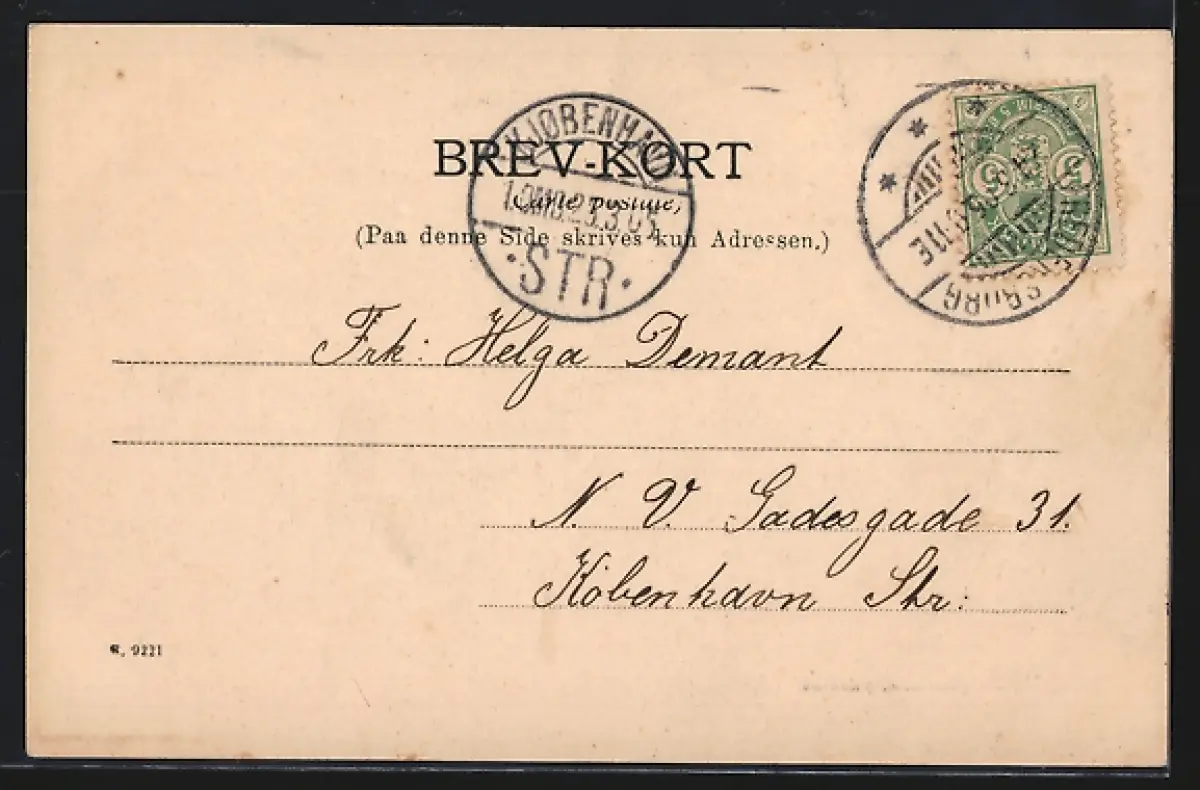 BREV-KORT
Carte postale,
(Paa denne Side skrives kun Adressen.)
KJØBENHAVN
1.OMB.25.3.05
STR.
5 5
11E
Frk: Helga Demant
N. V. Gadesgade 31.
København Str:
9221